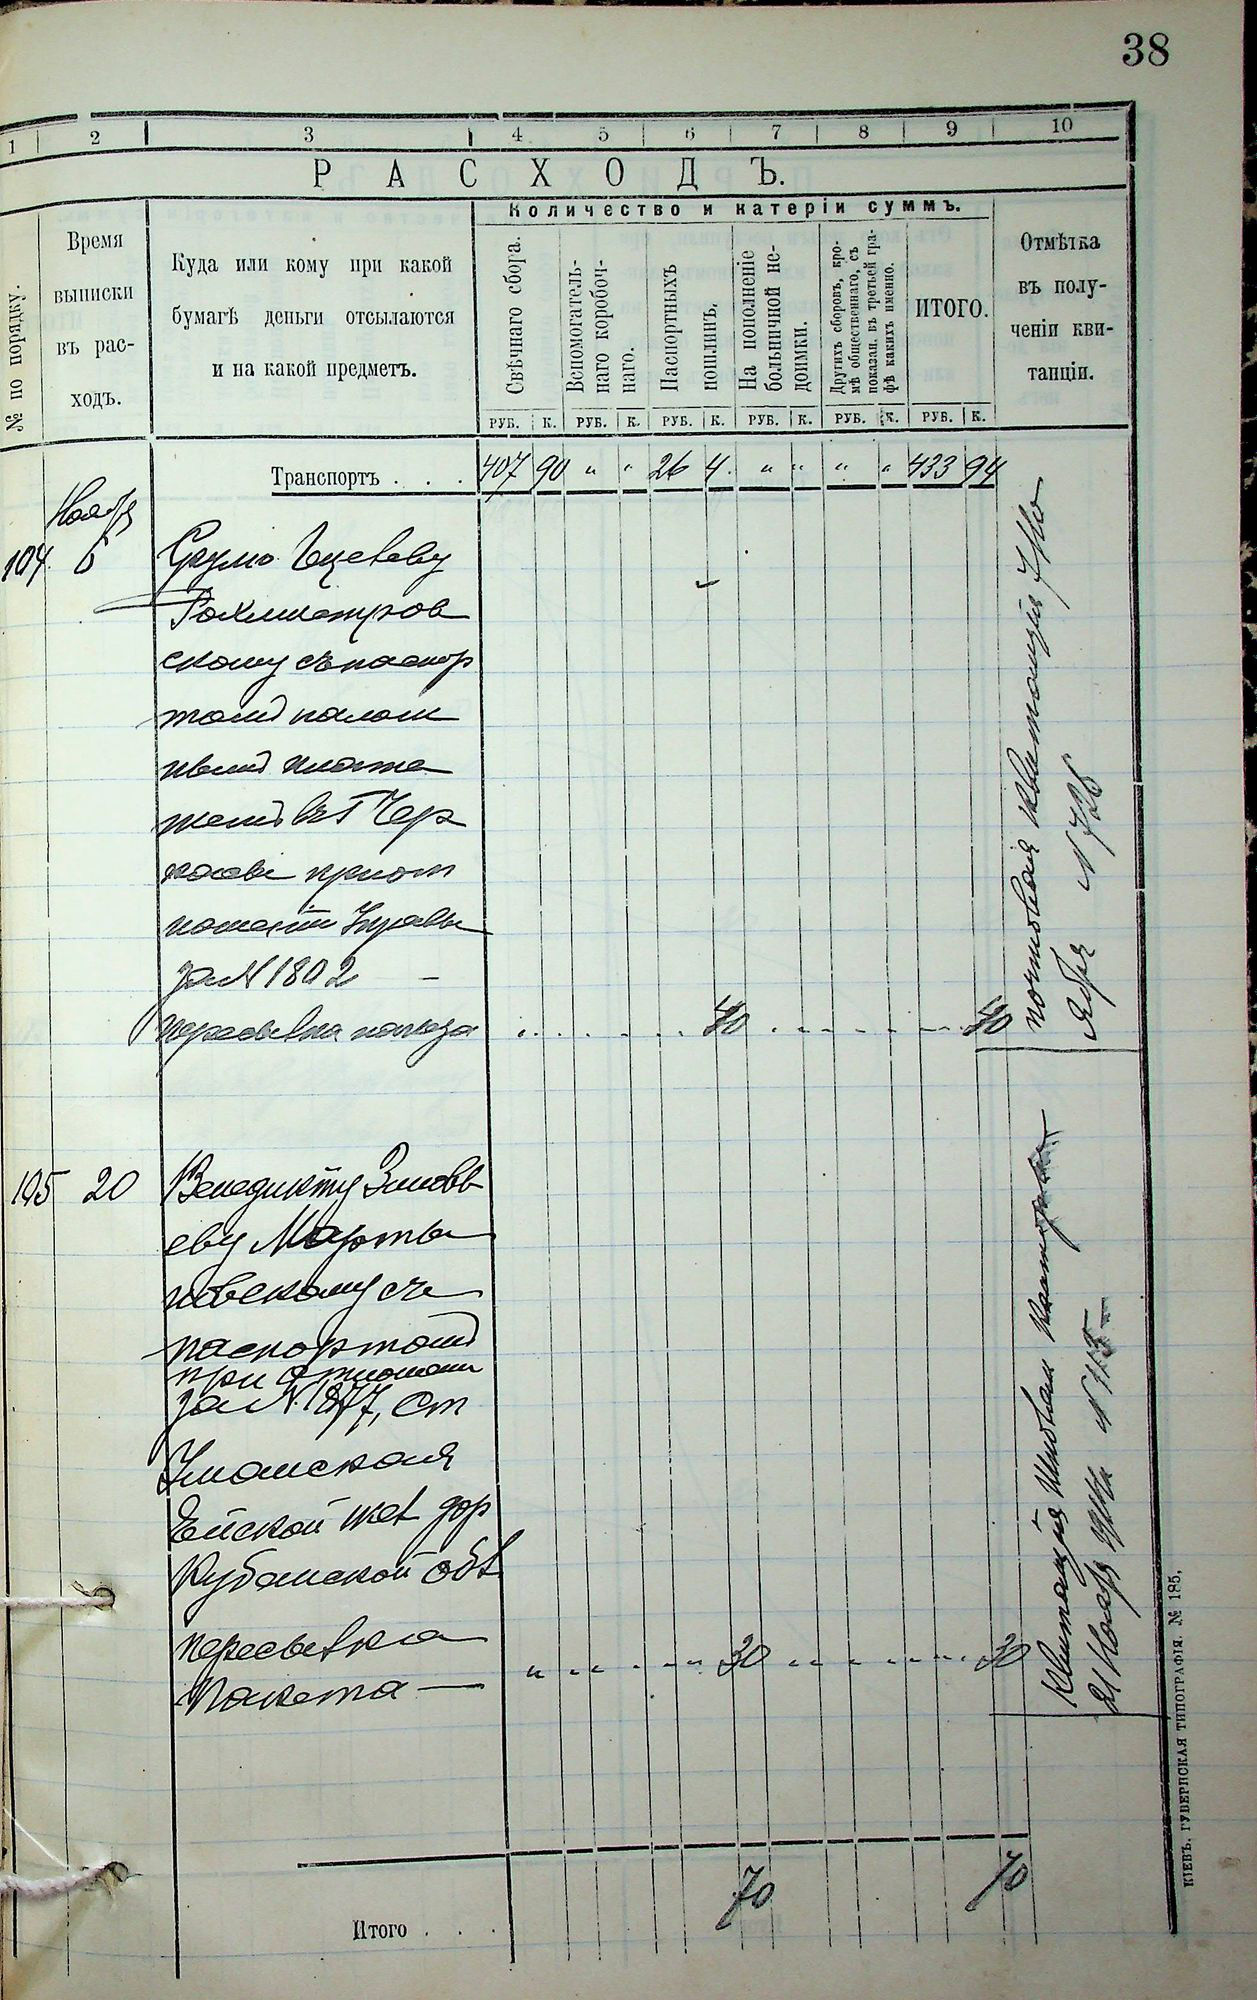 38
1 2 3 4 5 6 7 8 9 10
РАСХОДЪ.
№ по порядку.
Время
выписки
въ рас-
ходъ.
Куда или кому при какой
бумагѣ деньги отсылаются
и на какой предметъ.
Количество и катерiи суммъ.
Свѣчнаго сбора.
Вспомогатель-
наго коробоч-
наго.
Паспортныхъ
пошлинъ.
На пополненіе
больничной не-
доимки.
Другихъ сборовъ, кро-
мѣ общественнаго, съ
показан. въ третьей гра-
фѣ какихъ именно.
ИТОГО.
Отмѣтка
въ полу-
ченіи кви-
танціи.
РУБ. К. РУБ. К. РУБ. К. РУБ. К. РУБ. К. РУБ. К.
Транспортъ . . . 407 90 " " 26 4 " " " " 433 94
Ноябр
104 6
скому съ паспор
томъ налож
нымъ плате
жемъ въ г Чер
касы при от
ношеніи Управы
за № 1802 —
пересылка пакета 40 40
почтовая квитанція
№ 726
105 20 Венедикту Зиновь
еву Марты
новскому съ
паспортомъ
при отношени
за № 1877, Ст
Уманская
Ейской жел дор
Кубанской обл
пересылка
пакета — 30 30
Квитанція
21 Ноября № 115
70 70
Итого . . .
КІЕВЪ, ГУБЕРНСКАЯ ТИПОГРАФІЯ. № 185,